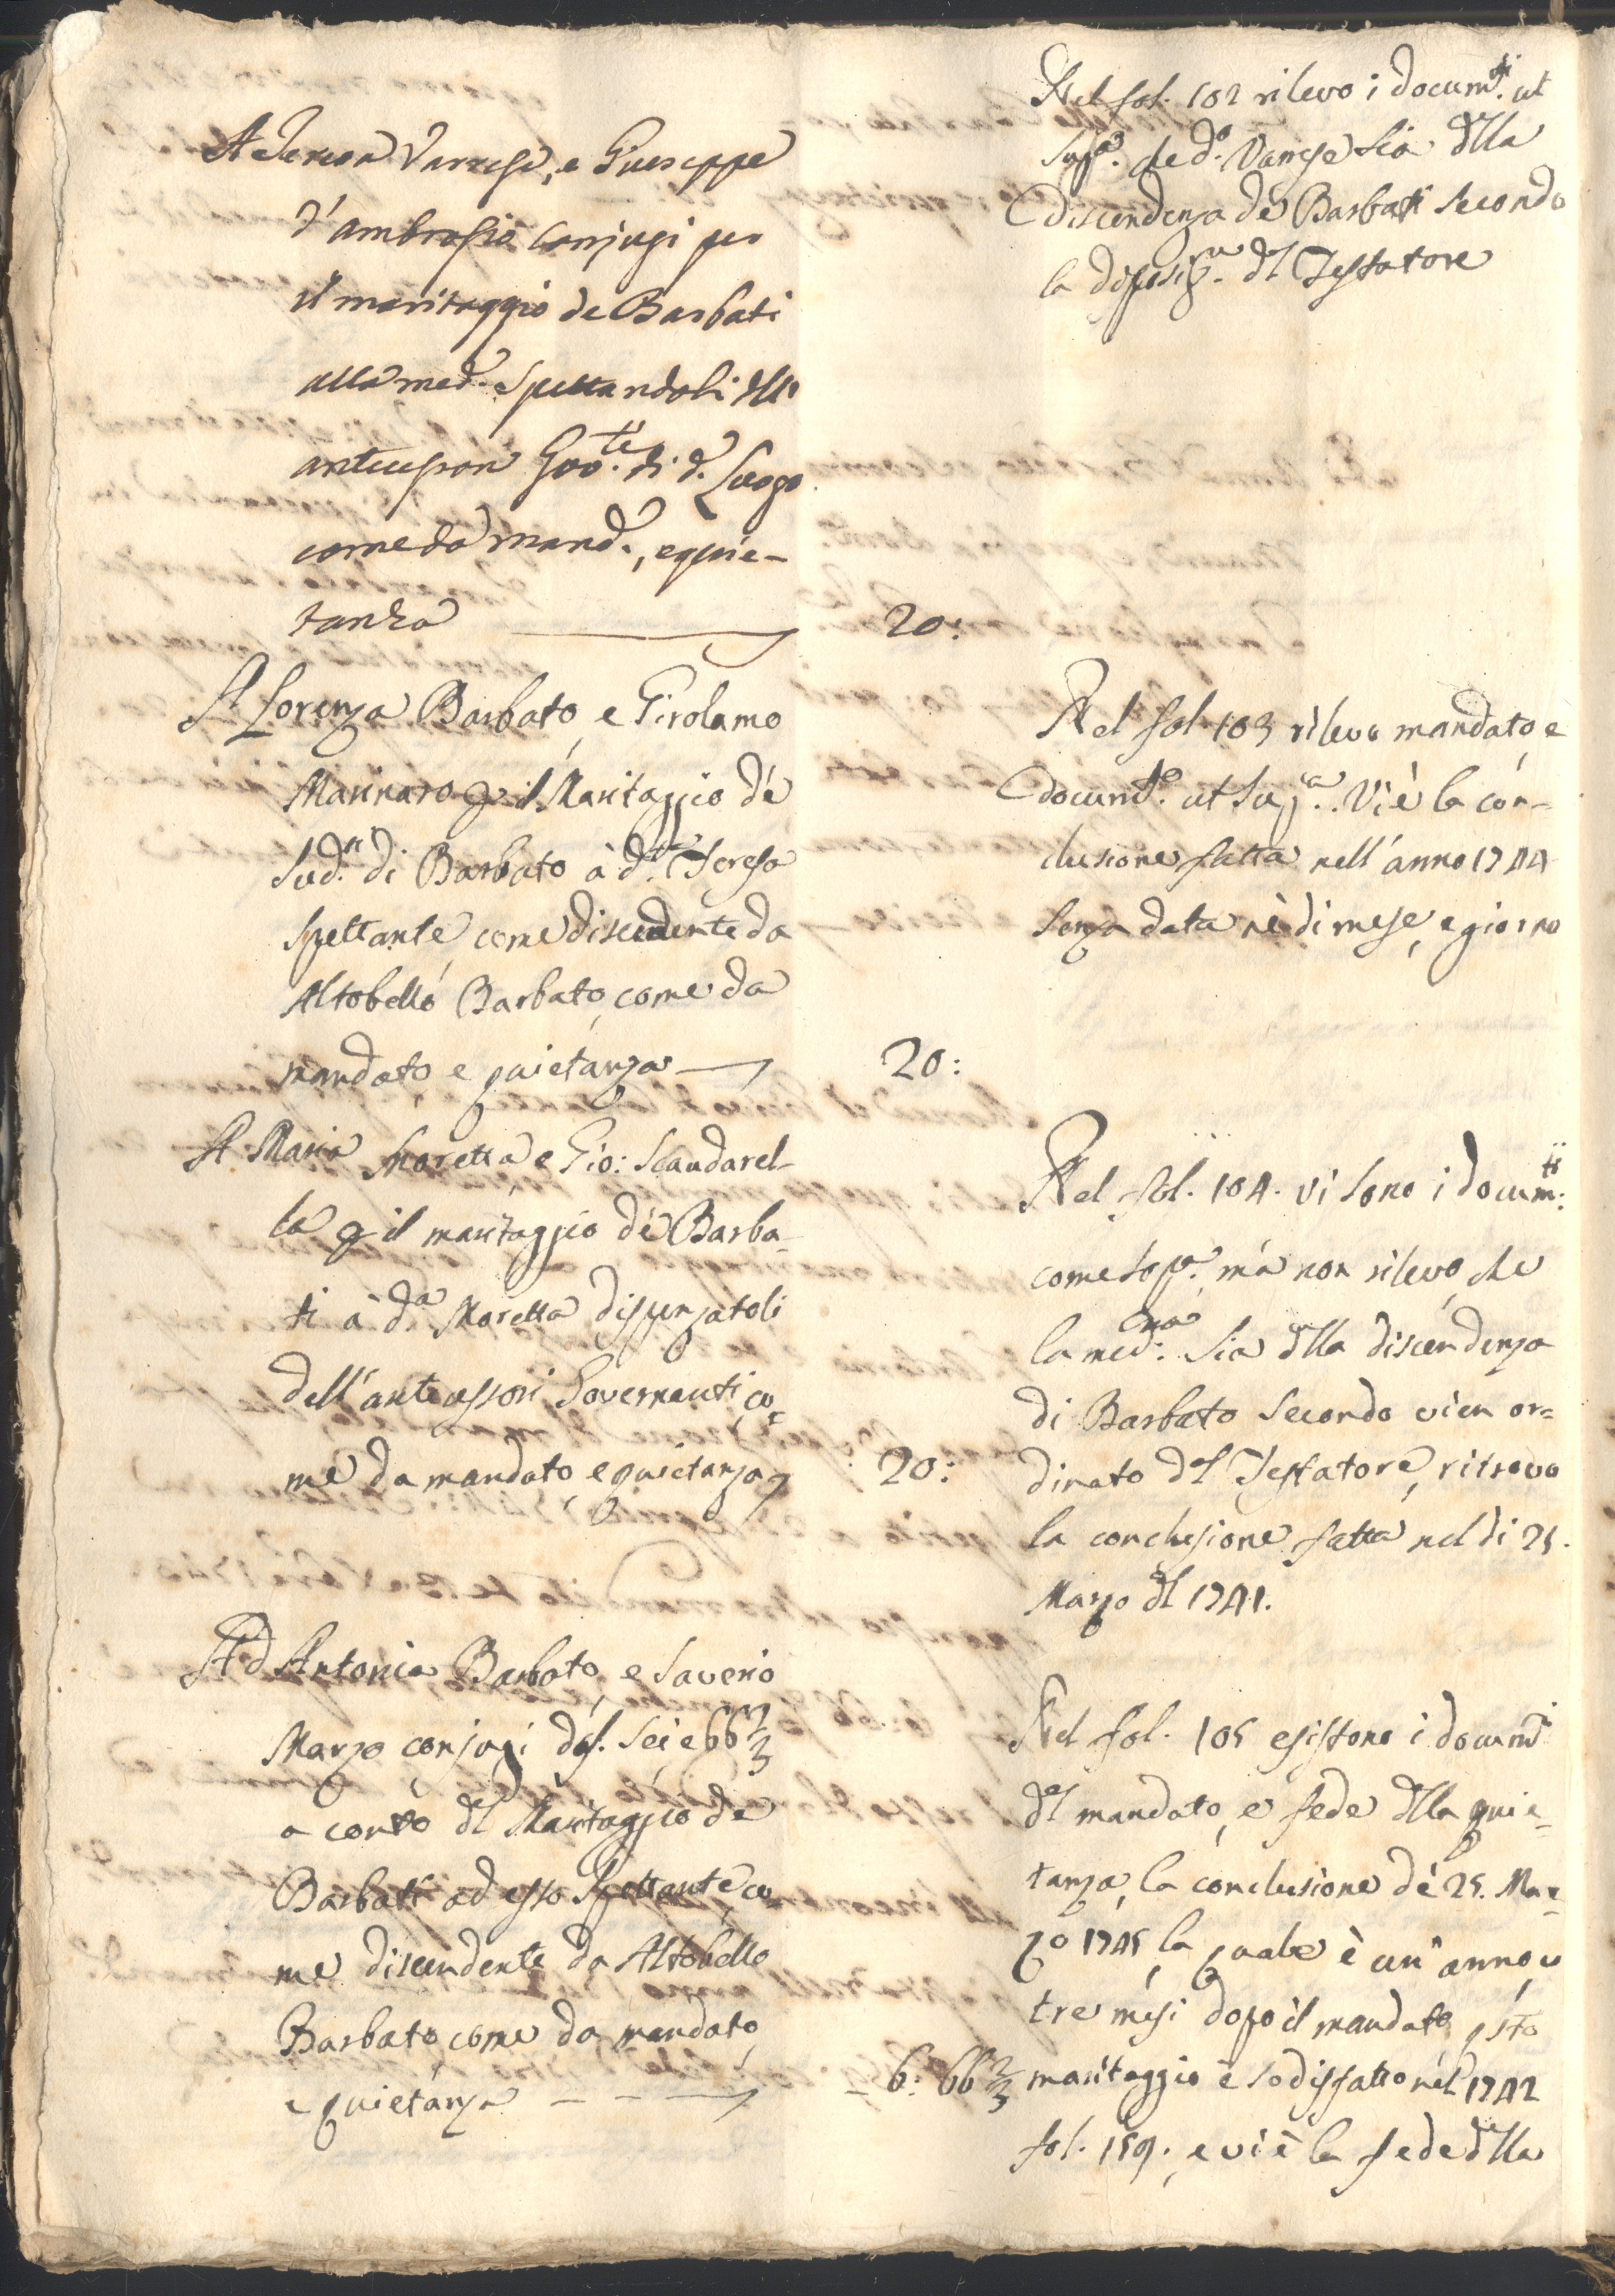 A Teresa Varrese, e Giuseppe
d'ambrosio Conjugi per
il maritaggio de Barbati
alla med.a spettandoli dll'
antecessori Gov.ti di d.o Luogo
come da mand.o, e quie-
tanza
20:
Nel fol. 102 rilevo i docum.ti ut
sup.a de d.o Varrese sia dlla
discendenza de Barbati secondo
la disposiz.e dl Testatore
A Lorenza Barbato, e Girolamo
Marinaro p il Maritaggio dé
sud.i di Barbato à d.ta Teresa
spettante, come discendente da
Altobello Barbato, come da
mandato e quietanza
20:
Nel fol. 103 rilevo mandato, e
docum.to ut sup.a. Vi è la con-
clusione fatta nell'anno 1744
senza data nè di mese, e giorno
A Maria Moretta e Gio: Scaudarel-
la p il maritaggio dé Barba-
ti à d.a Moretta dispensatoli
dell'antecessori Governanti, co-
me da mandato, e quietanza
20:
Nel fol. 104. vi sono i docum.ti
come sop.a, mà non rilevo, che
la med.ma sia dlla discendenza
di Barbato secondo vien or=
dinato dl Testatore, ritrovo
la conclusione fatta nel di 25.
Marzo dl 1741.
Ad Antonia Barbato, e Saverio
Marzo conjugi d. sei, e 66 2/3
a conto dl Maritaggio de
Barbati ad esso spettante, co
me discendente da Altobello
Barbato, come da mandato,
e quietanza
6: 66 2/3
Nel fol. 105 esistono i docum.i
dl mandato, e fede dlla quie=
tanza, la conclusione dè 25. Mar=
zo 1745, la quale è un'anno, e
tre mesi dopo il mandato, q.sto
maritaggio è sodisfatto nel 1742
fol. 159., e vi è la fede dlla